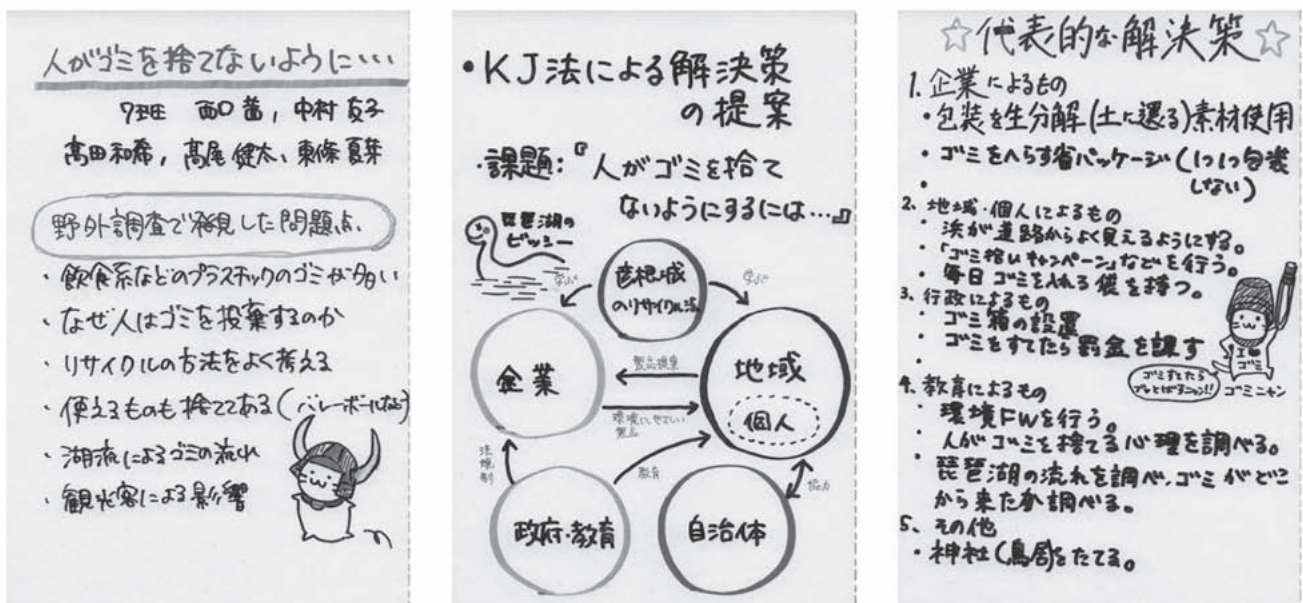 人がゴミを捨てないように・・・
7班 西口 茜, 中村 友子
高田和希, 高尾 健太、東條 夏葉
野外調査で発見した問題点
・飲食系などのプラスチックのゴミが多い
・なぜ人はゴミを投棄するのか
・リサイクルの方法をよく考える
・使えるものも捨ててある(バレーボールなど)
・湖流によるゴミの流れ
・観光客による影響
・KJ法による解決策
の提案
・課題:『人がゴミを捨て
ないようにするには…』
琵琶湖の
ビッシー
彦根城
のリサイクル法
学ぶ
学ぶ
企業
製品提案
環境にやさしい
製品
地域
個人
法規制
教育
協力
政府・教育
自治体
☆代表的な解決策☆
1. 企業によるもの
・包装を生分解(土に還る)素材使用
・ゴミをへらす省パッケージ(1つ1つ包装
しない)
・
2. 地域・個人によるもの
・浜が道路からよく見えるようにする。
・「ゴミ拾いキャンペーン」などを行う。
・毎日ゴミを入れる袋を持つ。
3. 行政によるもの
・ゴミ箱の設置
・ゴミをすてたら罰金を課す
・
I ♥
ゴミ
ゴミすてたら
ブッとばすニャン!!
ゴミニャン
4. 教育によるもの
・環境FWを行う。
・人がゴミを捨てる心理を調べる。
・琵琶湖の流れを調べ、ゴミがどこ
から来たか調べる。
5、その他
・神社(鳥居)をたてる。